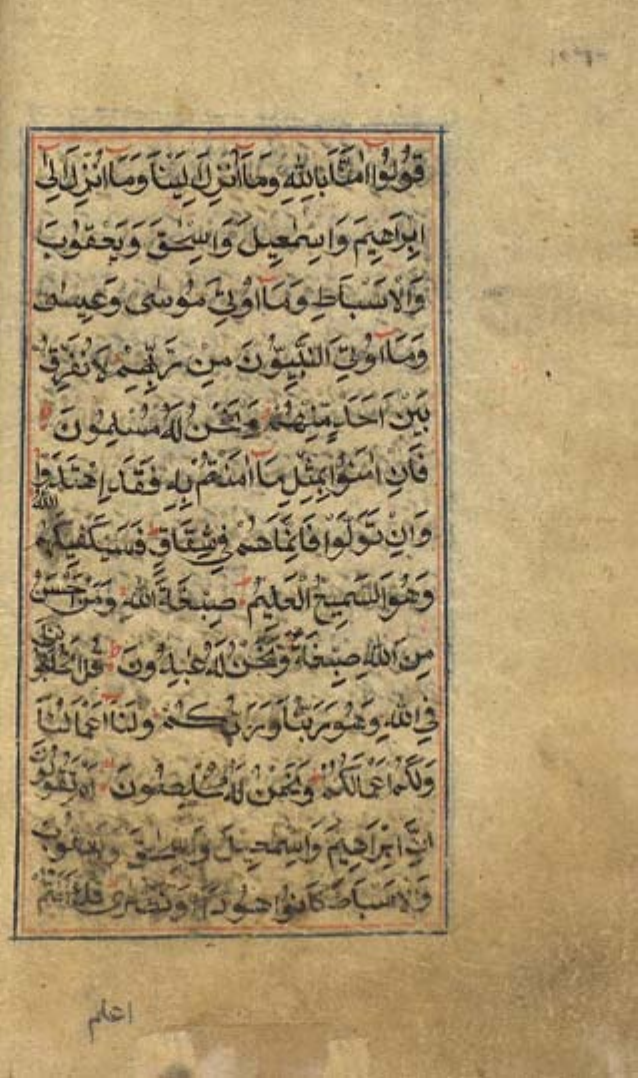 قُولُوا اٰمَنَّا بِاللّٰهِ وَمَآ اُنْزِلَ اِلَيْنَا وَمَآ اُنْزِلَ اِلٰى
اِبْرَاهِيمَ وَاِسْمٰعِيلَ وَاِسْحٰقَ وَيَعْقُوبَ
وَالْاَسْبَاطِ وَمَآ اُوتِيَ مُوسٰى وَعِيسٰى
وَمَآ اُوتِيَ النَّبِيُّونَ مِنْ رَبِّهِمْ لَا نُفَرِّقُ
بَيْنَ اَحَدٍ مِنْهُمْ وَنَحْنُ لَهُ مُسْلِمُونَ
فَاِنْ اٰمَنُوا بِمِثْلِ مَآ اٰمَنْتُمْ بِهِ فَقَدِ اهْتَدَوْا
وَاِنْ تَوَلَّوْا فَاِنَّمَا هُمْ فِي شِقَاقٍ فَسَيَكْفِيكَهُمُ اللّٰهُ
وَهُوَ السَّمِيعُ الْعَلِيمُ صِبْغَةَ اللّٰهِ وَمَنْ اَحْسَنُ
مِنَ اللّٰهِ صِبْغَةً وَنَحْنُ لَهُ عٰبِدُونَ قُلْ اَتُحَآجُّونَنَا
فِي اللّٰهِ وَهُوَ رَبُّنَا وَرَبُّكُمْ وَلَنَآ اَعْمَالُنَا
وَلَكُمْ اَعْمَالُكُمْ وَنَحْنُ لَهُ مُخْلِصُونَ اَمْ تَقُولُونَ
اِنَّ اِبْرَاهِيمَ وَاِسْمٰعِيلَ وَاِسْحٰقَ وَيَعْقُوبَ
وَالْاَسْبَاطَ كَانُوا هُودًا اَوْ نَصٰرٰى قُلْ ءَاَنْتُمْ
اعلم